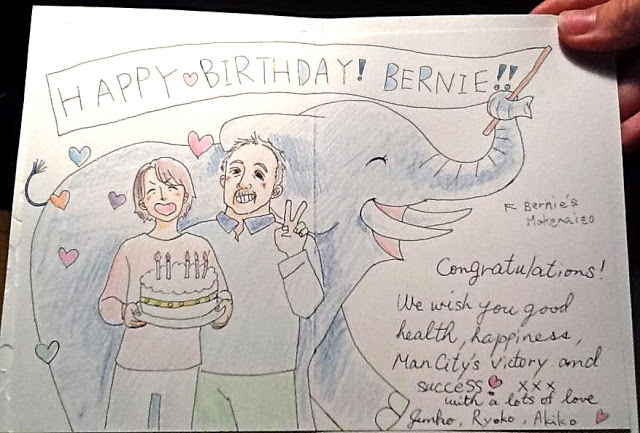 HAPPY BIRTHDAY! BERNIE!!
Bernie's
Makenaizo
Congratulations!
We wish you good
health, happiness,
ManCity's victory and
success xxx
with a lots of love
Junko, Ryoko, Akiko